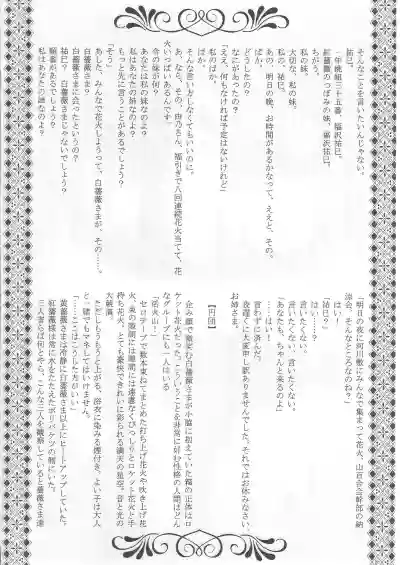 そんなことを言いたいんじゃない。
祐巳。
二年松組三十五番、福沢祐巳。
紅薔薇のつぼみの妹、福沢祐巳。
ちがう。
私の妹。
大切な、私の妹。
私の、祐巳。
あの、明日の晩、お時間があるかなって、ええと、その。
どうしたの？
なにがあったの？
「ええ、何もなければ予定はないけれど」
私のばか。
ばか。
そんな言い方しなくてもいいのに。
あ、なら、その、由乃さん、福引きで八回連続花火当てて、花
火いっぱいあるんです」
私の妹が何
あなたは私の妹なのよ？
私はあなたの姉なのよ？
もっと先に言うことがあるでしょう？
「そう」
あした、みんなで花火しようって、白薔薇さまが、その……。
白薔薇さま？
白薔薇さまに会ったというの？
祐巳？　白薔薇さまじゃないでしょう？
順番があるでしょう？
私はあなたの誰なのよ？
「明日の夜に河川敷にみんなで集まって花火、山百合会幹部の納
涼会、そんなところなのね？」
はい……。
「祐巳？」
はい？
言いたくない。
言いたくない。言いたくない。
「あなたも、ちゃんと来るのよ」
……はい！
言わずに済んだ。
夜遅くに大変申し訳ありませんでした。それではお休みなさい、
お姉さま。
【円団】
企み顔で微笑む白薔薇さまが小脇に抱えていた箱の正体はロ
ケット花火だった。こういうことを非常に好む性格の人間はどん
なグループにも一人はいる。
「噴火山！」
セロテープで数本束ねてまとめた打ち上げ花火や吹き上げ花
火、奥の隙間には隙間には遠慮なくびっしりとロケット花火と手
持ち花火、とても豪快できれいに彩られる満天の星空。音と光の
大薔薇。
ただしもうもうと上がる、浴衣に染みる煙付き。よい子は大人
と一緒でもマネしてはいけません。
「……ここはこうした方がいい」
黄薔薇さまは冷静に白薔薇さま以上にヒートアップしていた。
紅薔薇様は常に水をたたえたポリバケツの側にいた。
三人者らばは何とやら。こんな三人を観察していると薔薇さま達